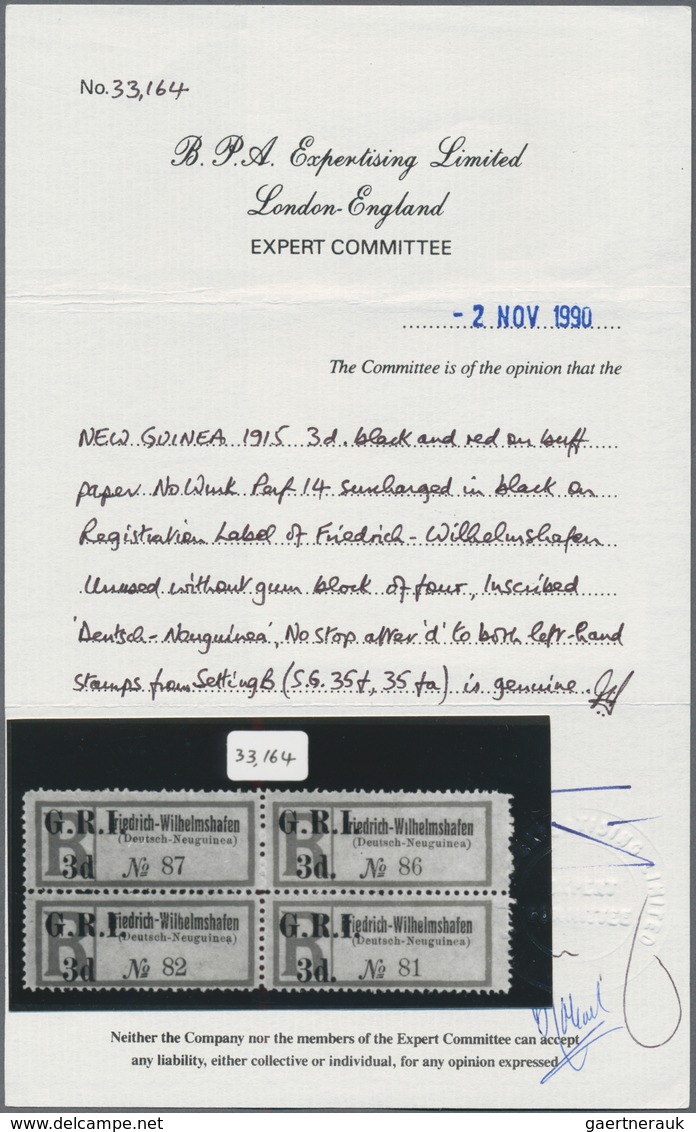 No. 33,164
B. P. A. Expertising Limited
London-England
EXPERT COMMITTEE
- 2 NOV 1990
The Committee is of the opinion that the
NEW GUINEA 1915 3d. black and red on buff
paper No Wmk Perf 14 surcharged in black on
Registration Label of Friedrich-Wilhelmshafen
Unused without gum block of four, Inscribed
'Deutsch-Neuguinea', No stop after 'd' to both left-hand
stamps from Setting B (S.G. 35f, 35fa) is genuine.
33,164
G.R.I. Friedrich-Wilhelmshafen G.R.I. Friedrich-Wilhelmshafen
(Deutsch-Neuguinea) (Deutsch-Neuguinea)
R 3d № 87 R 3d. № 86
G.R.I. Friedrich-Wilhelmshafen G.R.I. Friedrich-Wilhelmshafen
(Deutsch-Neuguinea) (Deutsch-Neuguinea)
R 3d № 82 R 3d. № 81
EXPERT
COMMITTEE
LIMITED
Neither the Company nor the members of the Expert Committee can accept
any liability, either collective or individual, for any opinion expressed
gaertnerauk @ delcampe.net